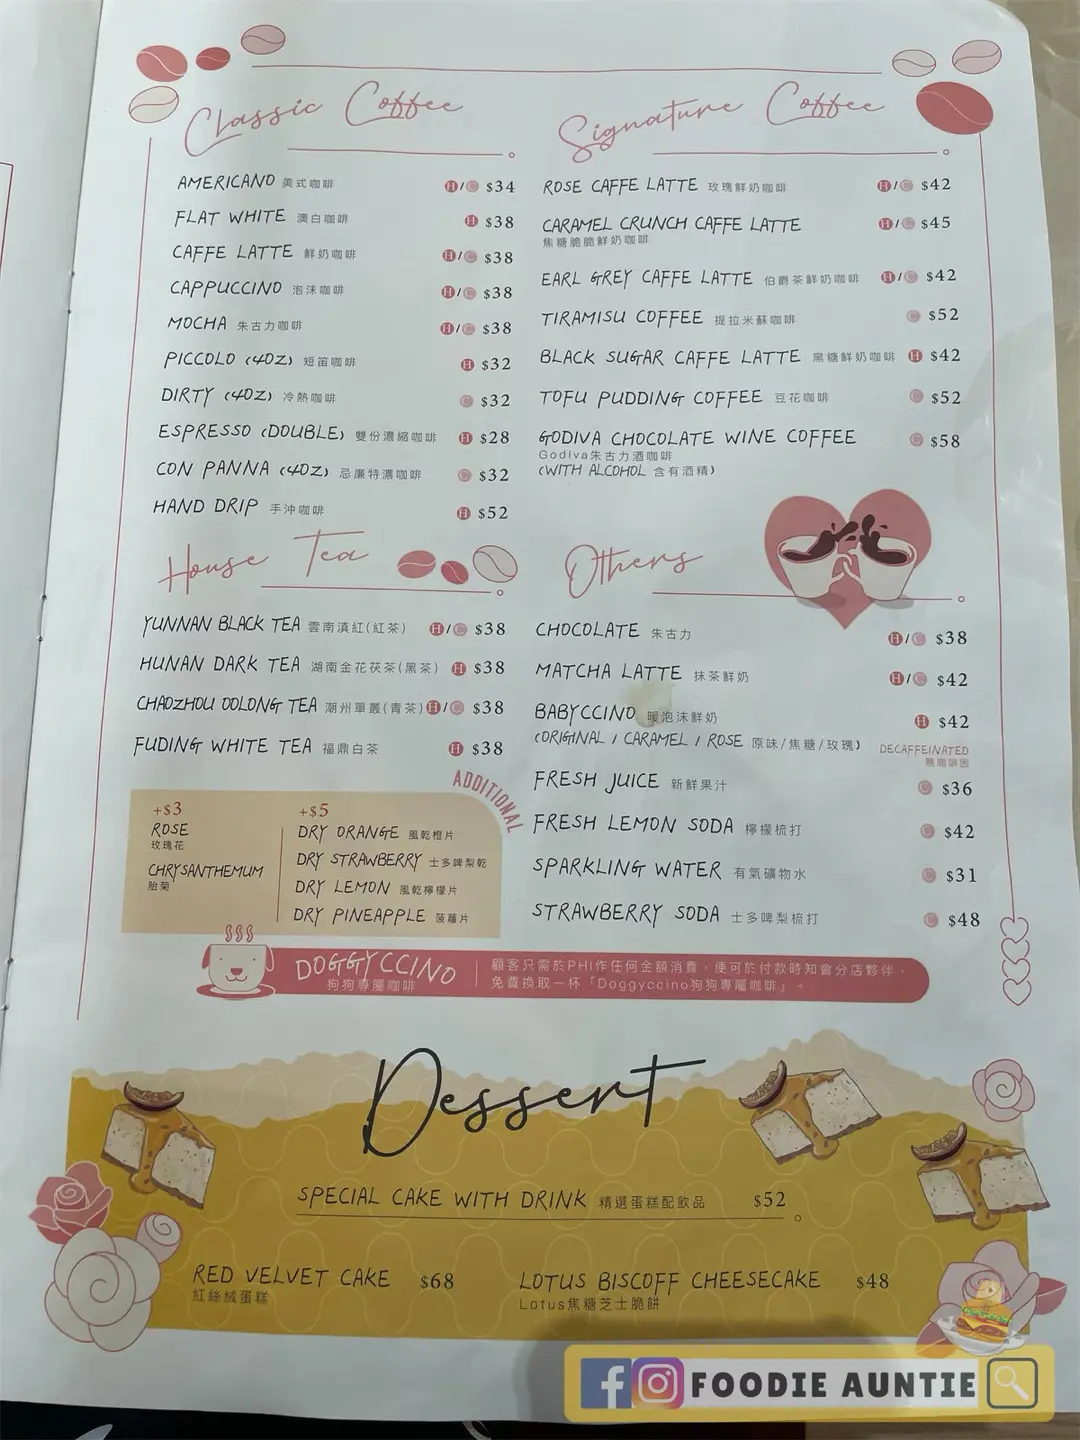 Classic Coffee
AMERICANO 美式咖啡 H/C $34
FLAT WHITE 澳白咖啡 H $38
CAFFE LATTE 鮮奶咖啡 H/C $38
CAPPUCCINO 泡沫咖啡 H/C $38
MOCHA 朱古力咖啡 H/C $38
PICCOLO (4OZ) 短笛咖啡 H $32
DIRTY (4OZ) 冷熱咖啡 C $32
ESPRESSO (DOUBLE) 雙份濃縮咖啡 H $28
CON PANNA (4OZ) 忌廉特濃咖啡 C $32
HAND DRIP 手沖咖啡 H $52
Signature Coffee
ROSE CAFFE LATTE 玫瑰鮮奶咖啡 H/C $42
CARAMEL CRUNCH CAFFE LATTE H/C $45
焦糖脆脆鮮奶咖啡
EARL GREY CAFFE LATTE 伯爵茶鮮奶咖啡 H/C $42
TIRAMISU COFFEE 提拉米蘇咖啡 C $52
BLACK SUGAR CAFFE LATTE 黑糖鮮奶咖啡 H $42
TOFU PUDDING COFFEE 豆花咖啡 C $52
GODIVA CHOCOLATE WINE COFFEE C $58
Godiva朱古力酒咖啡
(WITH ALCOHOL 含有酒精)
House Tea
YUNNAN BLACK TEA 雲南滇紅(紅茶) H/C $38
HUNAN DARK TEA 湖南金花茯茶(黑茶) H $38
CHAOZHOU OOLONG TEA 潮州單叢(青茶) H/C $38
FUDING WHITE TEA 福鼎白茶 H $38
ADDITIONAL
+$3
ROSE
玫瑰花
CHRYSANTHEMUM
胎菊
+$5
DRY ORANGE 風乾橙片
DRY STRAWBERRY 士多啤梨乾
DRY LEMON 風乾檸檬片
DRY PINEAPPLE 菠蘿片
Others
CHOCOLATE 朱古力 H/C $38
MATCHA LATTE 抹茶鮮奶 H/C $42
BABYCCINO 暖泡沫鮮奶 H $42
(ORIGINAL / CARAMEL / ROSE 原味/焦糖/玫瑰) DECAFFEINATED
無咖啡因
FRESH JUICE 新鮮果汁 C $36
FRESH LEMON SODA 檸檬梳打 C $42
SPARKLING WATER 有氣礦物水 C $31
STRAWBERRY SODA 士多啤梨梳打 C $48
DOGGYCCINO
狗狗專屬咖啡
顧客只需於PHI作任何金額消費，便可於付款時知會分店夥伴，
免費換取一杯「Doggyccino狗狗專屬咖啡」。
Dessert
SPECIAL CAKE WITH DRINK 精選蛋糕配飲品 $52
RED VELVET CAKE $68
紅絲絨蛋糕
LOTUS BISCOFF CHEESECAKE $48
Lotus焦糖芝士脆餅
FOODIE AUNTIE